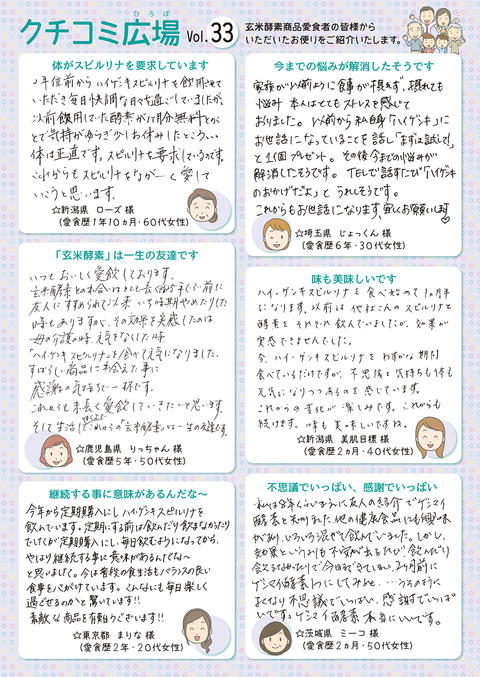 ひろば
クチコミ広場 Vol.33
玄米酵素商品愛食者の皆様から
いただいたお便りをご紹介いたします。
体がスピルリナを要求しています
2年位前からハイゲンキスピルリナを飲用させて
いただき毎日快調な日々を過ごしていましたが、
体は正直です。スピルリナを要求しているのです。
これからもスピルリナをながーく愛して
いこうと思います。
☆新潟県 ローズ 様
(愛食歴1年10ヵ月・60代女性)
「玄米酵素」は一生の友達です
いつもおいしく愛飲しております。
友人にすすめられて以来、いち時期やめたりした
時もありますが、その効果を実感したのは
母の介護の時、元気をなくした時
「ハイゲンキスピルリナ」を食べて元気になりました。
すばらしい商品に出会えた事に
感謝の気持ちで一杯です。
これからも末長く愛飲していきたいと思います。
☆鹿児島県 りっちゃん 様
(愛食歴5年・50代女性)
継続する事に意味があるんだな～
今年から定期購入にしハイ・ゲンキスピルリナを
飲んでいます。定期にする前は飲んだり飲まなかったり
でしたが定期購入にし、毎日飲むようになってから、
やはり継続する事に意味があるんだな～
と思いました。今は普段の食生活もバランスの良い
食事を心がけています。こんなにも毎日楽しく
過ごせるのかと驚いています!!
素敵な商品を有難うございます!!
☆東京都 まりな 様
(愛食歴2年・20代女性)
今までの悩みが解消したそうです
家族が以前より食事が摂れず、摂れても
悩み 本人はとてもストレスを感じて
おりました。以前から私自身「ハイゲンキ」に
お世話になっていることを話し「まずは試して!」
と1個プレゼント。その後今までの悩みが
解消したそうです。TELで話すたび「ハイゲンキ
のおかげだよ」とうれしそうです。
これからもお世話になります。宜しくお願いします
☆埼玉県 じょっくん 様
(愛食歴6年・30代女性)
味も美味しいです
ハイ・ゲンキスピルリナを食べ始めて1ヵ月半
になります。以前は他社さんのスピルリナと
酵素をそれぞれ飲んでいましたが、効果が
実感できませんでした。
今、ハイ・ゲンキスピルリナをわずかな期間
食べているだけですが、不思議と気持ちも体も
元気になりつつあるのを感じています。
これからの変化が楽しみです。これからも
続けます。味も美味しいですね。
☆新潟県 美肌目標 様
(愛食歴2ヵ月・40代女性)
不思議でいっぱい、感謝でいっぱい
があり、いろいろ混ぜて飲んでいました。しかし、
となり不思議でいっぱい、感謝でいっぱ
いです。ゲンマイ酵素 本当にいいです。
☆茨城県 ミーコ 様
(愛食歴2ヵ月・50代女性)